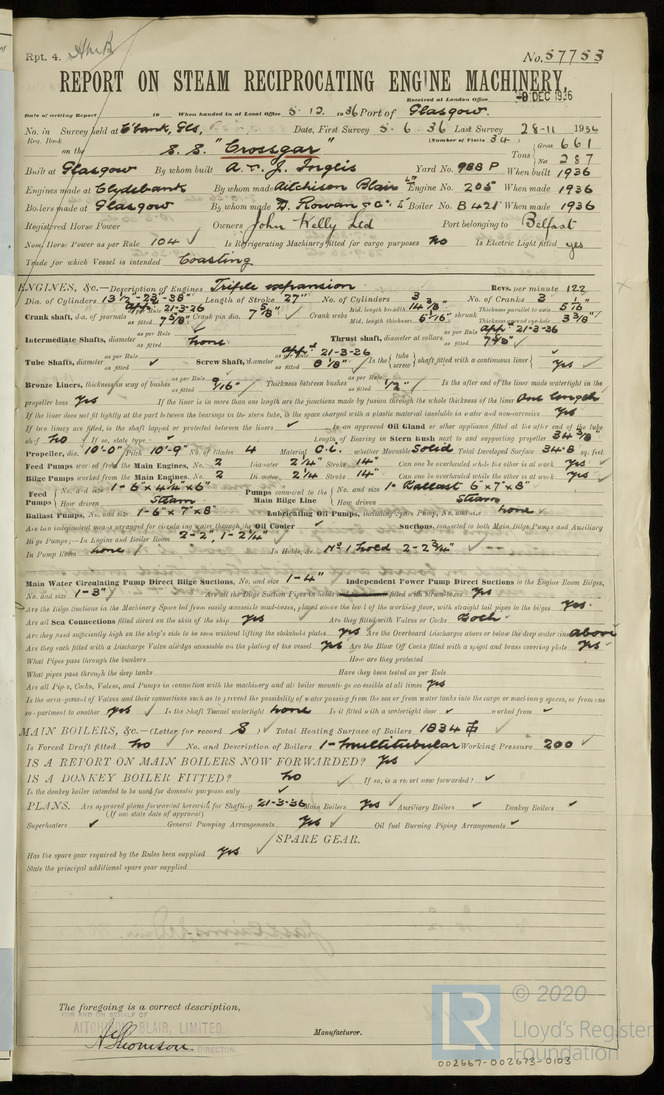 Rpt. 4.
No. 57753
REPORT ON STEAM RECIPROCATING ENGINE MACHINERY.
Received at London Office -9 DEC 1936
Date of writing Report 19 When handed in at Local Office 5.12.1936 Port of Glasgow.
No. in Survey held at C'bank, Gls, Date, First Survey 5.6.36 Last Survey 28-11 1936
Reg. Book (Number of Visits 34)
on the S.S. "Crossgar" Tons Gross 661 Net 287
Built at Glasgow By whom built A. & J. Inglis Yard No. 988P When built 1936
Engines made at Clydebank By whom made Aitchison Blair Ld Engine No. 205 When made 1936
Boilers made at Glasgow By whom made D. Rowan & Co. Ld Boiler No. B421 When made 1936
Registered Horse Power Owners John Kelly Ltd Port belonging to Belfast
Nom. Horse Power as per Rule 104 Is Refrigerating Machinery fitted for cargo purposes No Is Electric Light fitted yes
Trade for which Vessel is intended Coasting
ENGINES, &c.—Description of Engines Triple expansion Revs. per minute 122
Dia. of Cylinders 13½"-23-38" Length of Stroke 27" No. of Cylinders 3 No. of Cranks 3
Crank shaft, dia. of journals as per Rule App. 21-3-36 as fitted 7 5/8" Crank pin dia. 7 5/8" Crank webs Mid. length breadth 14 3/8" Mid. length thickness 5 1/16" shrunk Thickness parallel to axis 5 1/16" Thickness around eye-hole 3 3/8"
Intermediate Shafts, diameter as per Rule as fitted none Thrust shaft, diameter at collars as per Rule App. 21-3-36 as fitted 7 5/8"
Tube Shafts, diameter as per Rule as fitted Screw Shaft, diameter as per Rule App. 21-3-36 as fitted 8 1/8" Is the tube screw shaft fitted with a continuous liner yes
Bronze Liners, thickness in way of bushes as per Rule as fitted 9/16" Thickness between bushes as per Rule as fitted 1/2" Is the after end of the liner made watertight in the
propeller boss yes If the liner is in more than one length are the junctions made by fusion through the whole thickness of the liner One length
If the liner does not fit tightly at the part between the bearings in the stern tube, is the space charged with a plastic material insoluble in water and non-corrosive yes
If two liners are fitted, is the shaft lapped or protected between the liners Is an approved Oil Gland or other appliance fitted at the after end of the tube
shaft No If so, state type Length of Bearing in Stern Bush next to and supporting propeller 34 3/8"
Propeller, dia. 10'-0" Pitch 10'-9" No. of Blades 4 Material C.I. whether Moveable Solid Total Developed Surface 34.8 sq. feet
Feed Pumps worked from the Main Engines, No. 2 Diameter 2¼" Stroke 14" Can one be overhauled while the other is at work yes
Bilge Pumps worked from the Main Engines, No. 2 Diameter 2¼ Stroke 14" Can one be overhauled while the other is at work yes
Feed Pumps No. and size 1-6"x4¼"x6" How driven Steam Pumps connected to the Main Bilge Line No. and size 1-Ballast 6"x7"x8" How driven Steam
Ballast Pumps, No. and size 1-6"x7"x8" Lubricating Oil Pumps, including Spare Pump, No. and size none
Are two independent means arranged for circulating water through the Oil Cooler Suctions, connected to both Main Bilge Pumps and Auxiliary
Bilge Pumps;—In Engine and Boiler Room 2-2", 1-2¼"
In Pump Room none In Holds, &c. No 1 hold 2-2¾"
Main Water Circulating Pump Direct Bilge Suctions, No. and size 1-4" Independent Power Pump Direct Suctions to the Engine Room Bilges,
No. and size 1-3" Are all the Bilge Suction Pipes in holds fitted with strum-boxes yes
Are the Bilge Suctions in the Machinery Space led from easily accessible mud-boxes, placed above the level of the working floor, with straight tail pipes to the bilges yes.
Are all Sea Connections fitted direct on the skin of the ship yes Are they fitted with Valves or Cocks Both
Are they fixed sufficiently high on the ship's side to be seen without lifting the stokehold plates yes Are the Overboard Discharges above or below the deep water line above
Are they each fitted with a Discharge Valve always accessible on the plating of the vessel yes Are the Blow Off Cocks fitted with a spigot and brass covering plate yes
What Pipes pass through the bunkers How are they protected
What pipes pass through the deep tanks Have they been tested as per Rule
Are all Pipes, Cocks, Valves, and Pumps in connection with the machinery and all boiler mountings accessible at all times yes
Is the arrangement of Valves and their connections such as to prevent the possibility of water passing from the sea or from water tanks into the cargo or machinery spaces, or from one
compartment to another yes Is the Shaft Tunnel watertight none Is it fitted with a watertight door worked from
MAIN BOILERS, &c.—(Letter for record S) Total Heating Surface of Boilers 1834
Is Forced Draft fitted No No. and Description of Boilers 1-Multitubular Working Pressure 200
IS A REPORT ON MAIN BOILERS NOW FORWARDED? yes
IS A DONKEY BOILER FITTED? no If so, is a report now forwarded?
Is the donkey boiler intended to be used for domestic purposes only
PLANS. Are approved plans forwarded herewith for Shafting 21-3-36 Main Boilers yes Auxiliary Boilers Donkey Boilers
(If not state date of approval)
Superheaters General Pumping Arrangements yes Oil fuel Burning Piping Arrangements
SPARE GEAR.
Has the spare gear required by the Rules been supplied yes
State the principal additional spare gear supplied
The foregoing is a correct description,
FOR AND ON BEHALF OF
AITCHISON BLAIR, LIMITED
A Thomson DIRECTOR. Manufacturer.
LR © 2020
Lloyd's Register
Foundation
002667-002673-0103